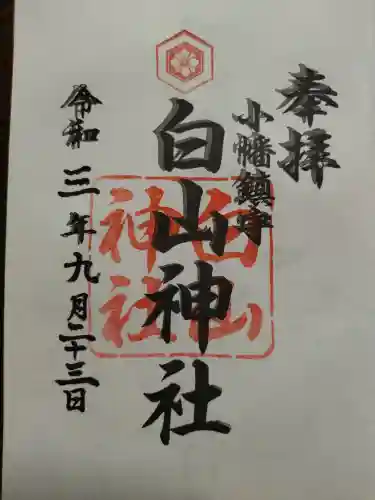 奉拝
小幡鎮守
白山神社
白山
神社
令和三年九月二十三日